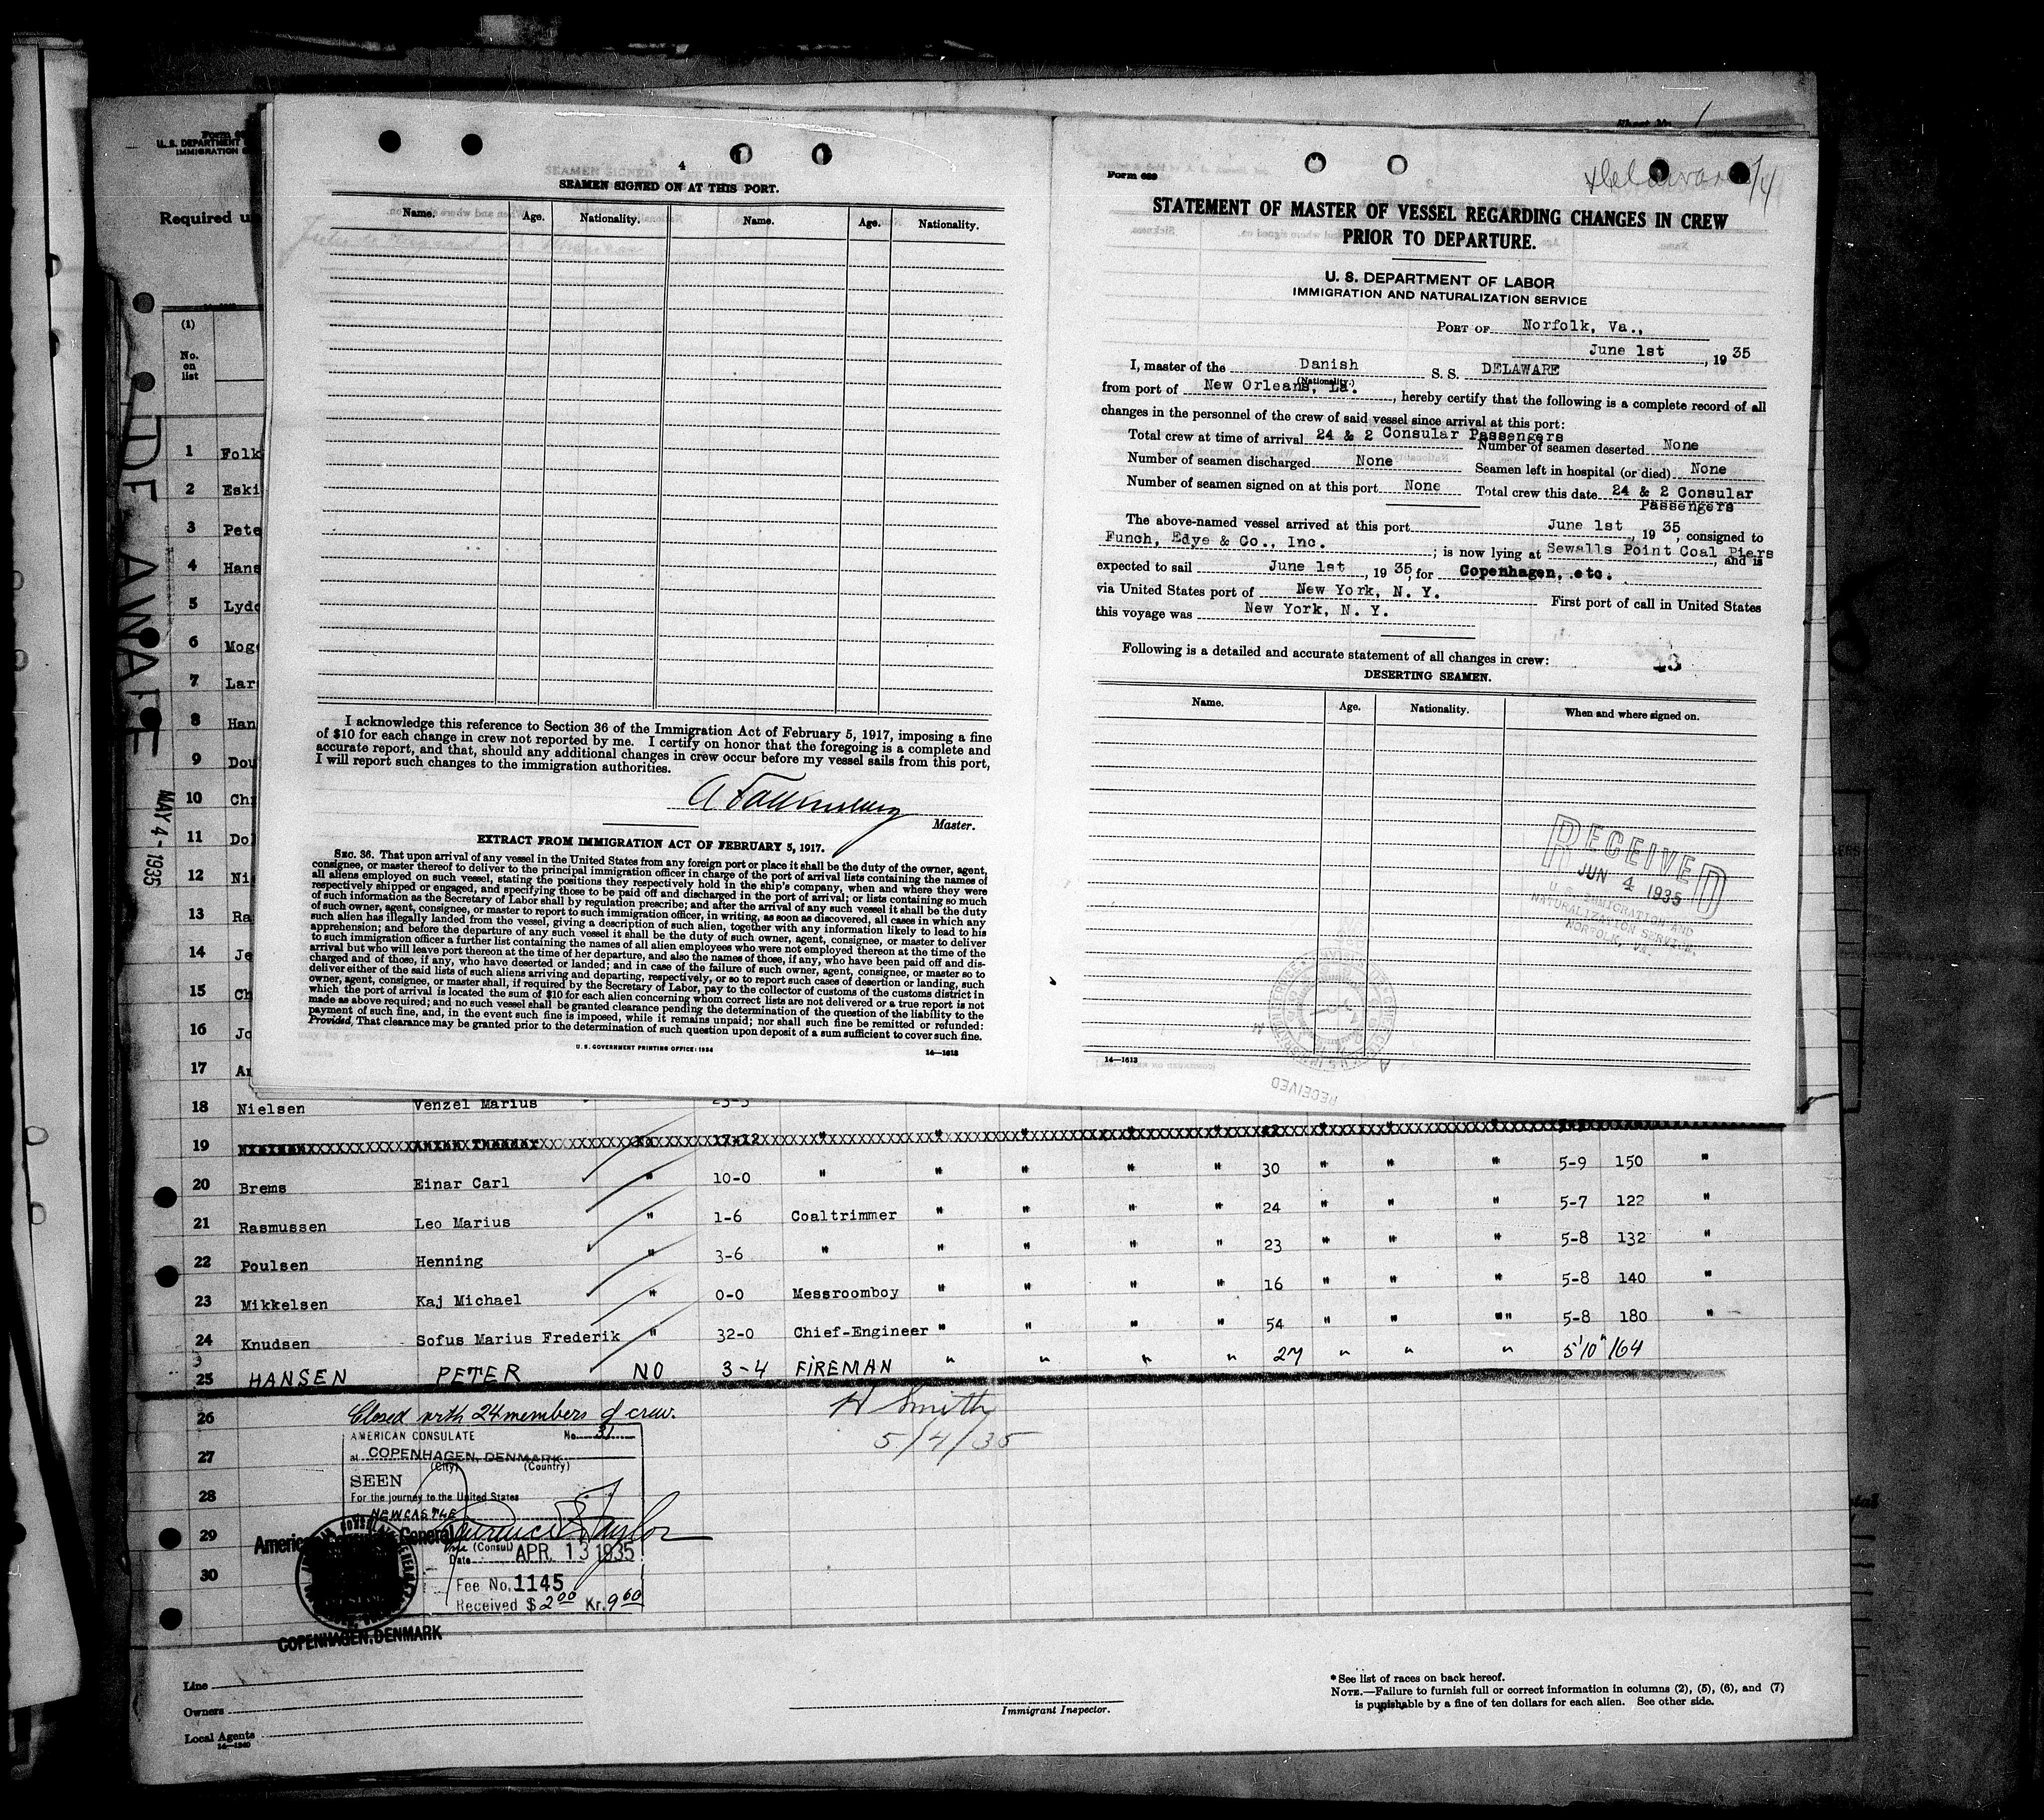 Sheet No. 1
Form 68
U. S. DEPARTMENT
IMMIGRATION
Required u
(1)
No. on list
DELAWARE
MAY 4 - 1935
1 Folk
2 Eski
3 Pete
4 Hans
5 Lydo
6 Moge
7 Lar
8 Han
9 Dou
10 Chr
11 Dol
12 Ni
13 Ra
14 Je
15 Ch
16 Jo
17 An
4
SEAMEN SIGNED ON AT THIS PORT.
Name. Age. Nationality. Name. Age. Nationality.
I acknowledge this reference to Section 36 of the Immigration Act of February 5, 1917, imposing a fine
of $10 for each change in crew not reported by me. I certify on honor that the foregoing is a complete and
accurate report, and that, should any additional changes in crew occur before my vessel sails from this port,
I will report such changes to the immigration authorities.
Master.
EXTRACT FROM IMMIGRATION ACT OF FEBRUARY 5, 1917.
SEC. 36. That upon arrival of any vessel in the United States from any foreign port or place it shall be the duty of the owner, agent,
consignee, or master thereof to deliver to the principal immigration officer in charge of the port of arrival lists containing the names of
all aliens employed on such vessel, stating the positions they respectively hold in the ship's company, when and where they were
respectively shipped or engaged, and specifying those to be paid off and discharged in the port of arrival; or lists containing so much
of such information as the Secretary of Labor shall by regulation prescribe; and after the arrival of any such vessel it shall be the duty
of such owner, agent, consignee, or master to report to such immigration officer, in writing, as soon as discovered, all cases in which any
such alien has illegally landed from the vessel, giving a description of such alien, together with any information likely to lead to his
apprehension; and before the departure of any such vessel it shall be the duty of such owner, agent, consignee, or master to deliver
to such immigration officer a further list containing the names of all alien employees who were not employed thereon at the time of the
arrival but who will leave port thereon at the time of her departure, and also the names of those, if any, who have been paid off and dis-
charged and of those, if any, who have deserted or landed; and in case of the failure of such owner, agent, consignee, or master so to
deliver either of the said lists of such aliens arriving and departing, respectively, or so to report such cases of desertion or landing, such
owner, agent, consignee, or master shall, if required by the Secretary of Labor, pay to the collector of customs of the customs district in
which the port of arrival is located the sum of $10 for each alien concerning whom correct lists are not delivered or a true report is not
made as above required; and no such vessel shall be granted clearance pending the determination of the question of the liability to the
payment of such fine, and, in the event such fine is imposed, while it remains unpaid; nor shall such fine be remitted or refunded:
Provided, That clearance may be granted prior to the determination of such question upon deposit of a sum sufficient to cover such fine.
U. S. GOVERNMENT PRINTING OFFICE: 1934 14—1613
Form 689
Delaware
STATEMENT OF MASTER OF VESSEL REGARDING CHANGES IN CREW
PRIOR TO DEPARTURE.
U. S. DEPARTMENT OF LABOR
IMMIGRATION AND NATURALIZATION SERVICE
PORT OF Norfolk, Va.,
June 1st, 1935
I, master of the Danish S. S. DELAWARE
(Nationality.)
from port of New Orleans, La., hereby certify that the following is a complete record of all
changes in the personnel of the crew of said vessel since arrival at this port:
Total crew at time of arrival 24 & 2 Consular Passengers Number of seamen deserted None
Number of seamen discharged None Seamen left in hospital (or died) None
Number of seamen signed on at this port None Total crew this date 24 & 2 Consular
Passengers
The above-named vessel arrived at this port June 1st, 1935, consigned to
Funch, Edye & Co., Inc.; is now lying at Sewalls Point Coal Piers, and is
expected to sail June 1st, 1935, for Copenhagen, etc.
via United States port of New York, N. Y. First port of call in United States
this voyage was New York, N. Y.
Following is a detailed and accurate statement of all changes in crew:
DESERTING SEAMEN.
Name. Age. Nationality. When and where signed on.
RECEIVED
JUN 4 1935
U. S. IMMIGRATION AND
NATURALIZATION SERVICE,
NORFOLK, VA.
RECEIVED
14—1613
18 Nielsen Venzel Marius 23-3
19 Anton Theodor No 17-12 " " " " " " " "
20 Brems Einar Carl " 10-0 " " " " " 30 " " " 5-9 150 "
21 Rasmussen Leo Marius " 1-6 Coaltrimmer " " " " 24 " " " 5-7 122 "
22 Poulsen Henning " 3-6 " " " " " 23 " " " 5-8 132 "
23 Mikkelsen Kaj Michael " 0-0 Messroomboy " " " " 16 " " " 5-8 140 "
24 Knudsen Sofus Marius Frederik " 32-0 Chief-Engineer " " " " 54 " " "" 5-8 180 "
25 HANSEN PETER NO 3-4 FIREMAN " " " " 27 " " " 5'10" 164
26 Closed with 24 members of crew. H Smith
5/4/35
27
28
29
30
AMERICAN CONSULATE No. 31
at COPENHAGEN, DENMARK
(City) (Country)
SEEN
For the journey to the United States
NEWCASTLE
American Consulate General
Vice (Consul)
Date APR. 13 1935
Fee No. 1145
Received $ 2.00 Kr. 9.60
COPENHAGEN, DENMARK
Line
Owners
Local Agents
14—1240
Immigrant Inspector.
*See list of races on back hereof.
NOTE.—Failure to furnish full or correct information in columns (2), (5), (6), and (7)
is punishable by a fine of ten dollars for each alien. See other side.